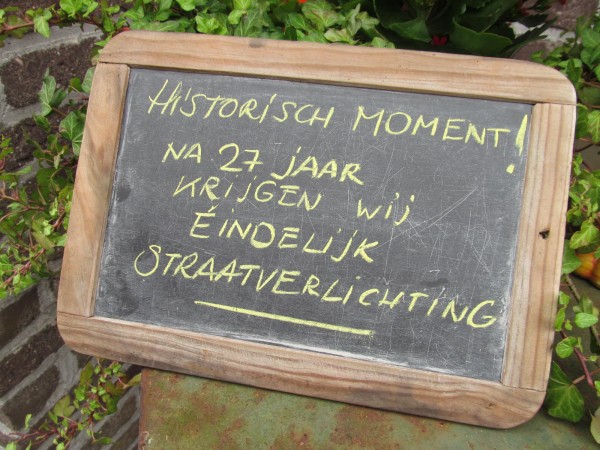 HISTORISCH MOMENT!
NA 27 JAAR
KRIJGEN WIJ
ÉINDELIJK
STRAATVERLICHTING